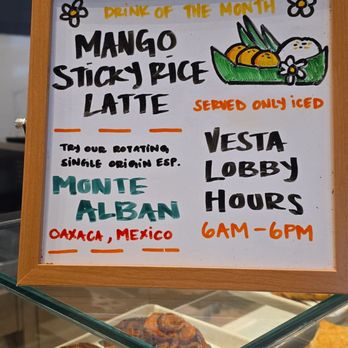 DRINK OF THE MONTH
MANGO
STICKY RICE
LATTE
SERVED ONLY ICED
TRY OUR ROTATING
SINGLE ORIGIN ESP.
MONTE
ALBAN
OAXACA, MEXICO
VESTA
LOBBY
HOURS
6AM-6PM